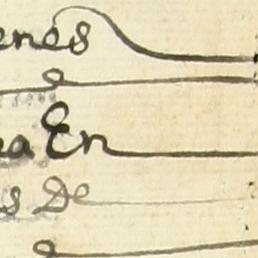 enes
a En
s De